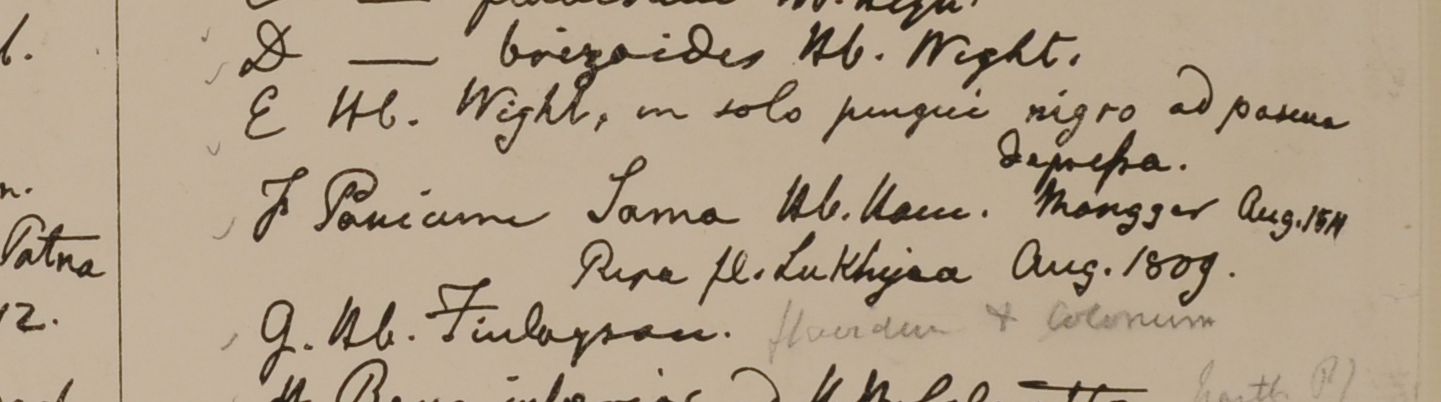 D — brizoides Hb. Wight.
E Hb. Wight, in solo pingui nigro ad pascua
depressa.
F Panicum Sama Hb. Ham. Mongger Aug. 1811
Ripa fl. Lukhyaa Aug. 1809.
G. Hb. Finlayson. & colonum
Patna
12.